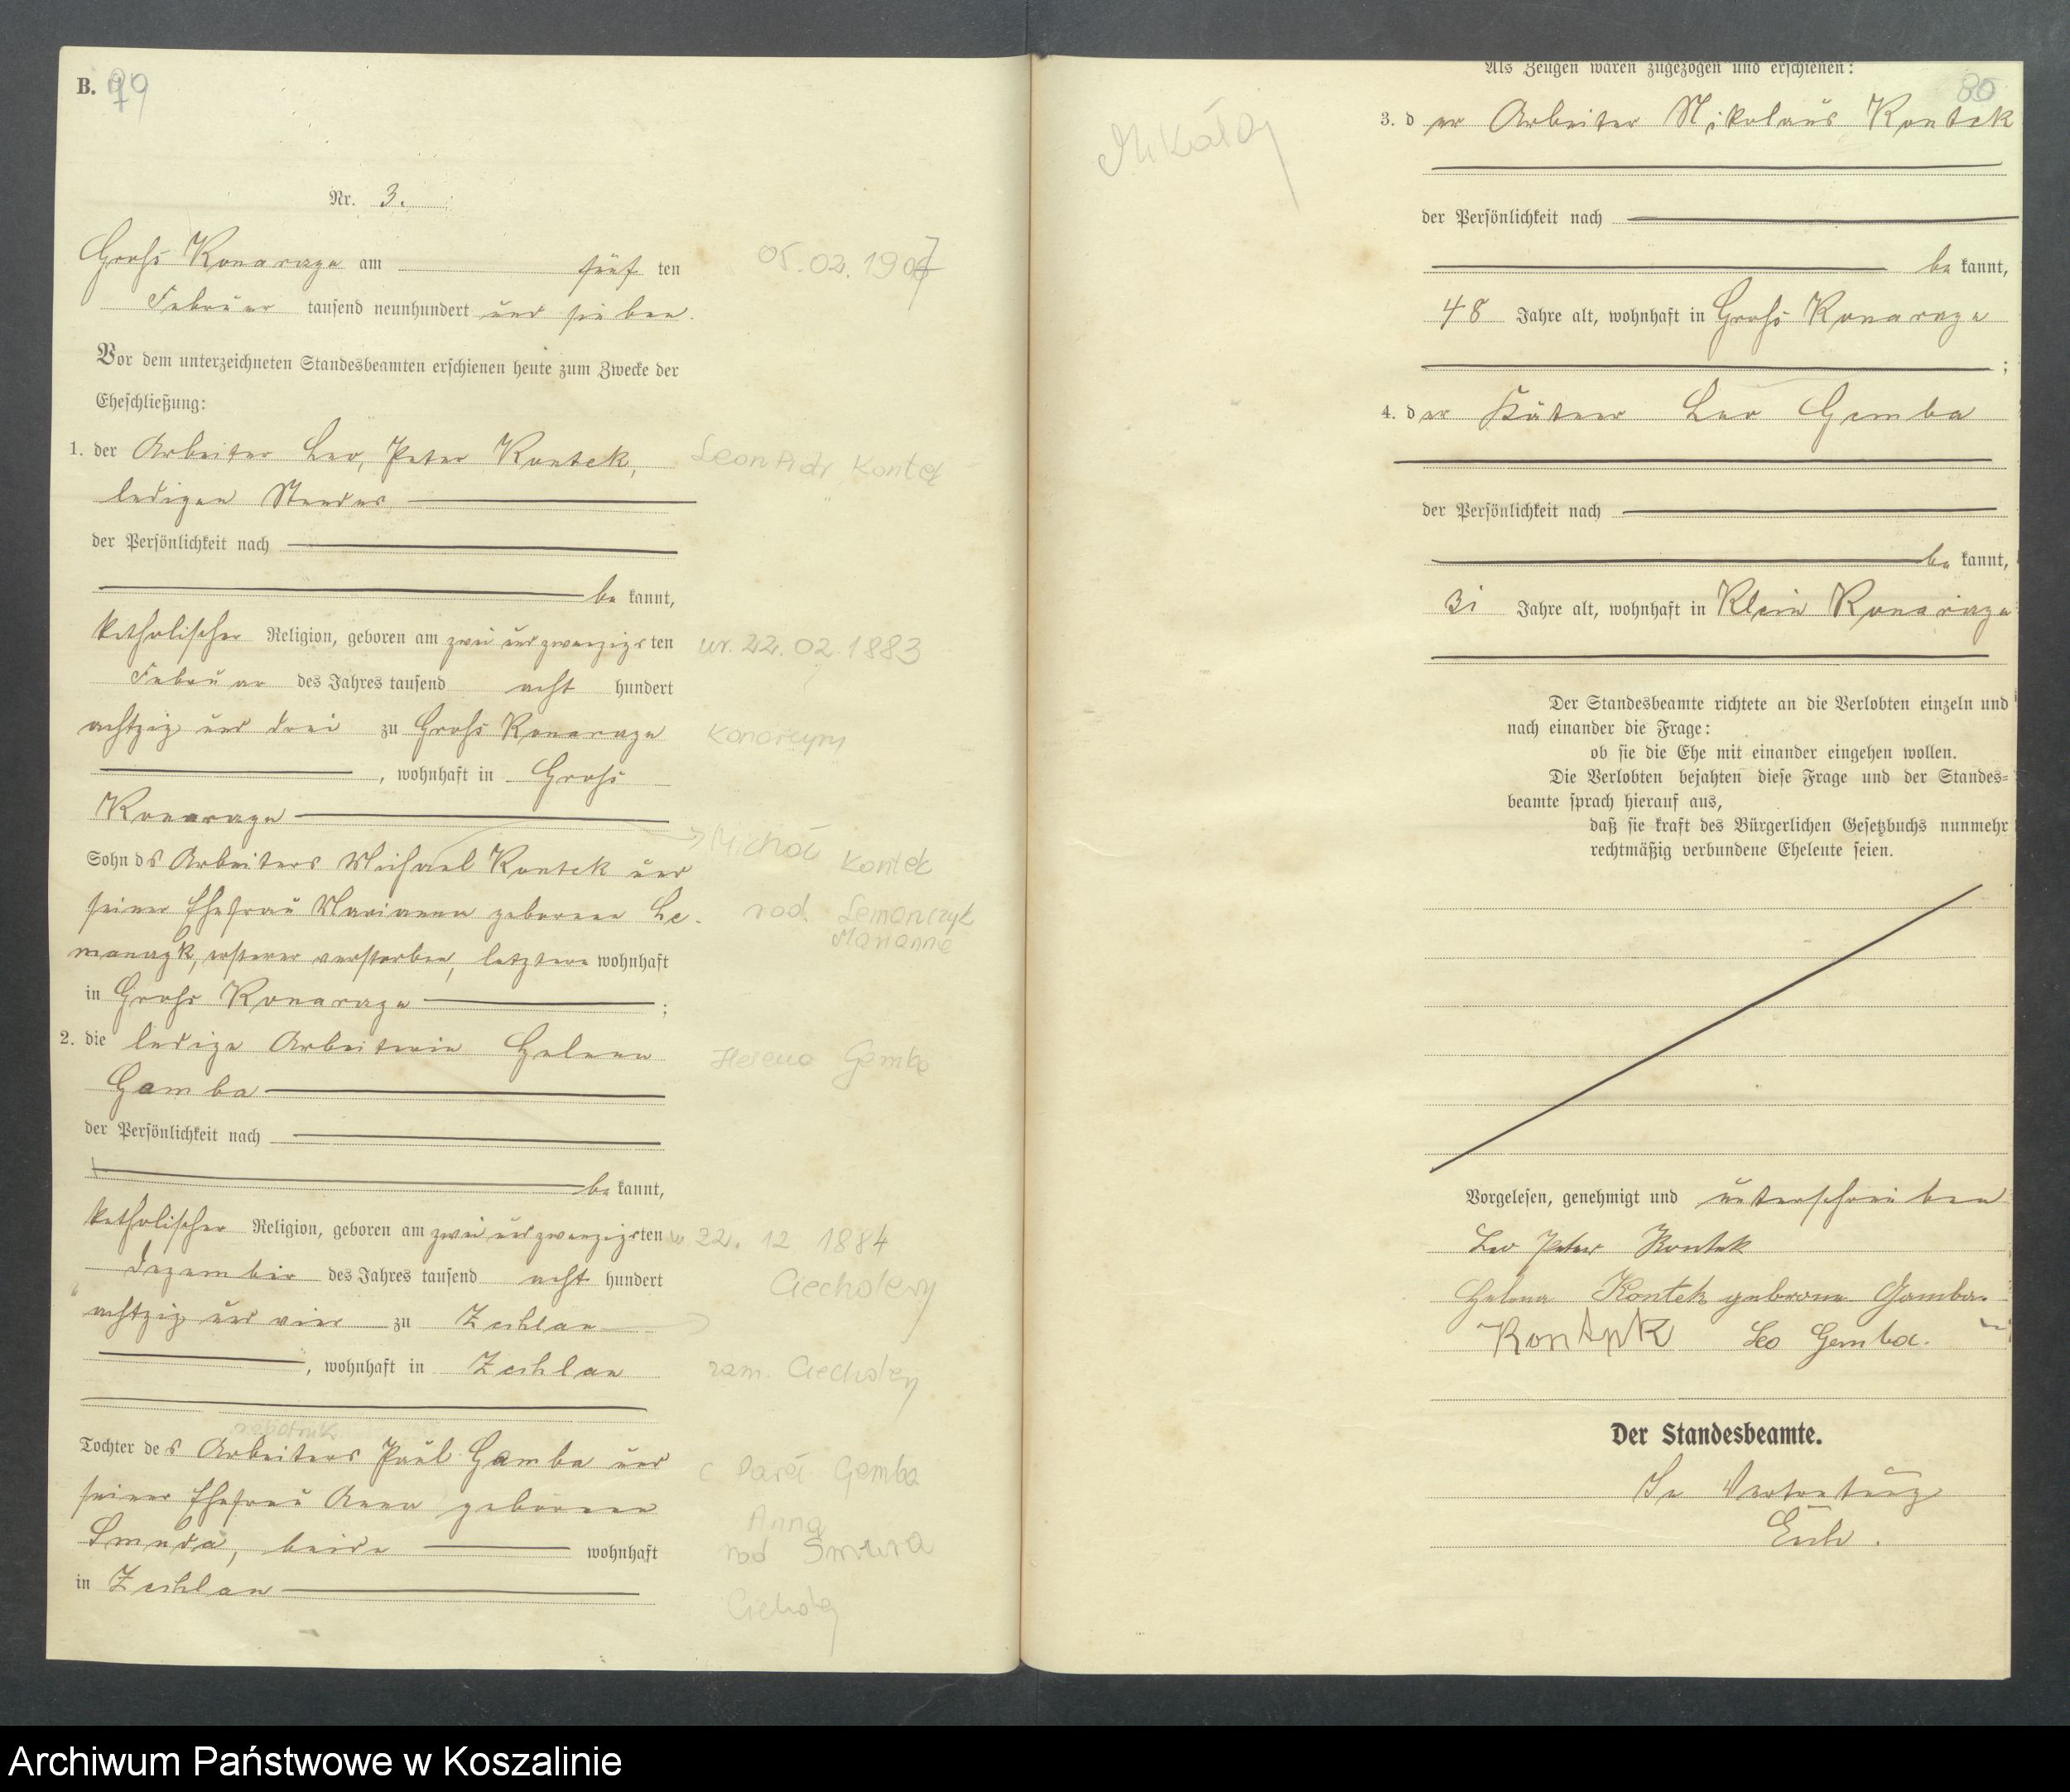 B. 79
Nr. 3.
Groß Konarczyn am fünf ten
Februar tausend neunhundert und sieben.
05.02.1907
Vor dem unterzeichneten Standesbeamten erschienen heute zum Zwecke der
Eheschließung:
1. der Arbeiter Leo, Peter Kontek,
Leon Piotr Kontek
ledigen Standes
der Persönlichkeit nach
be kannt,
katholischer Religion, geboren am zwei und zwanzigsten
ur. 22.02.1883
Februar des Jahres tausend acht hundert
achtzig und drei zu Groß Konarczyn
Konarzyny
, wohnhaft in Groß
Konarczyn
Sohn des Arbeiters Michael Kontek und
Michał Kontek
seiner Ehefrau Marianna geborene Le-
rod. Lemańczyk
Marianna
manczyk, ersterer verstorben, letztere wohnhaft
in Groß Konarczyn ;
2. die ledige Arbeiterin Helena
Helena Gemba
Gamba
der Persönlichkeit nach
be kannt,
katholischer Religion, geboren am zwei und zwanzigsten
ur 22. 12 1884
Dezember des Jahres tausend acht hundert
Ciecholewy
achtzig und vier zu Zechlau
, wohnhaft in Zechlau
zam.
robotnik
Tochter des Arbeiters Paul Gamba und
c Paweł Gemba
seiner Ehefrau Anna geborenen
Anna
Smuda, beide wohnhaft
rod
in Zechlau
80
Als Zeugen waren zugezogen und erschienen:
Mikołaj
3. der Arbeiter Nikolaus Kontek
der Persönlichkeit nach
be kannt,
48 Jahre alt, wohnhaft in Groß Konarczyn
;
4. der Kätner Leo Gemba
der Persönlichkeit nach
be kannt,
31 Jahre alt, wohnhaft in Klein Konarczyn
Der Standesbeamte richtete an die Verlobten einzeln und
nach einander die Frage:
ob sie die Ehe mit einander eingehen wollen.
Die Verlobten bejahten diese Frage und der Standes-
beamte sprach hierauf aus,
daß sie kraft des Bürgerlichen Gesetzbuchs nunmehr
rechtmäßig verbundene Eheleute seien.
Vorgelesen, genehmigt und unterschrieben
Leo Peter Kontek
Helena Kontek geborene Gamba.
Kontek Leo Gemba.
Der Standesbeamte.
In Vertretung
Archiwum Państwowe w Koszalinie